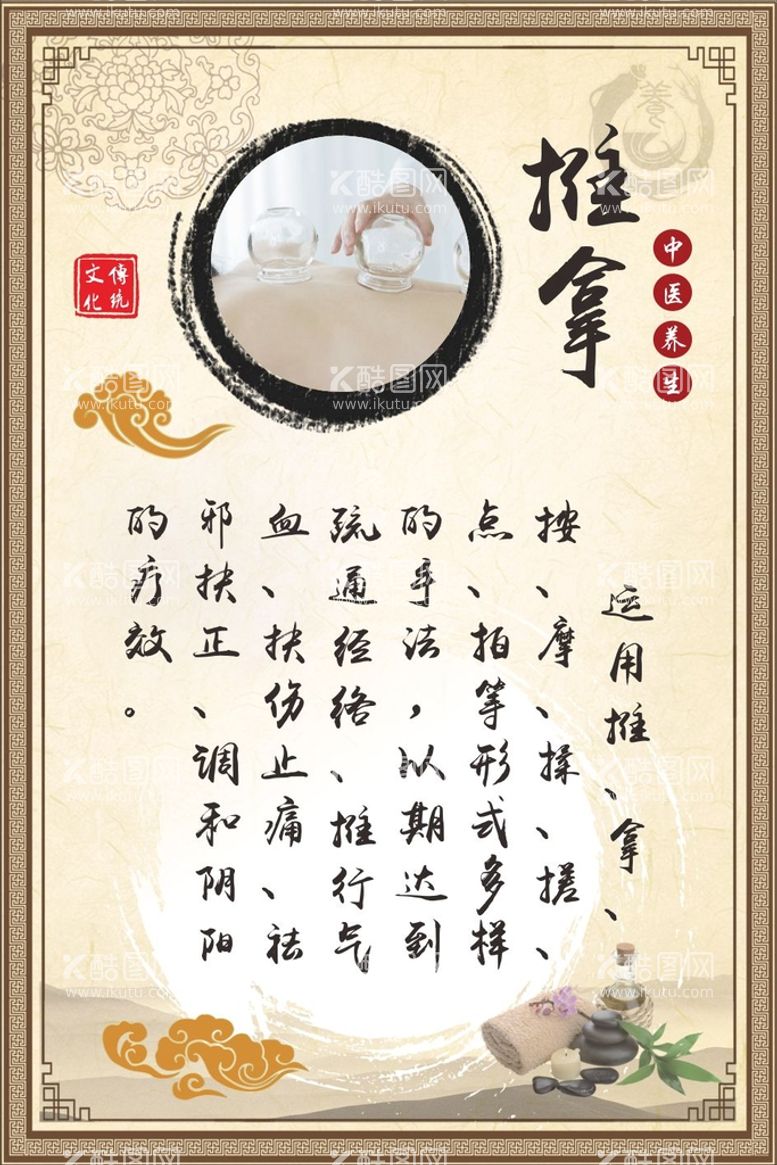 推拿
中医养生
傳統
文化
運用推、拿、
按、摩、揉、搓、
点、拍等形式多样
的手法，以期达到
疏通经络、推行气
血、扶伤止痛、祛
邪扶正、调和阴阳
的疗效。
養
酷图网
www.ikutu.com